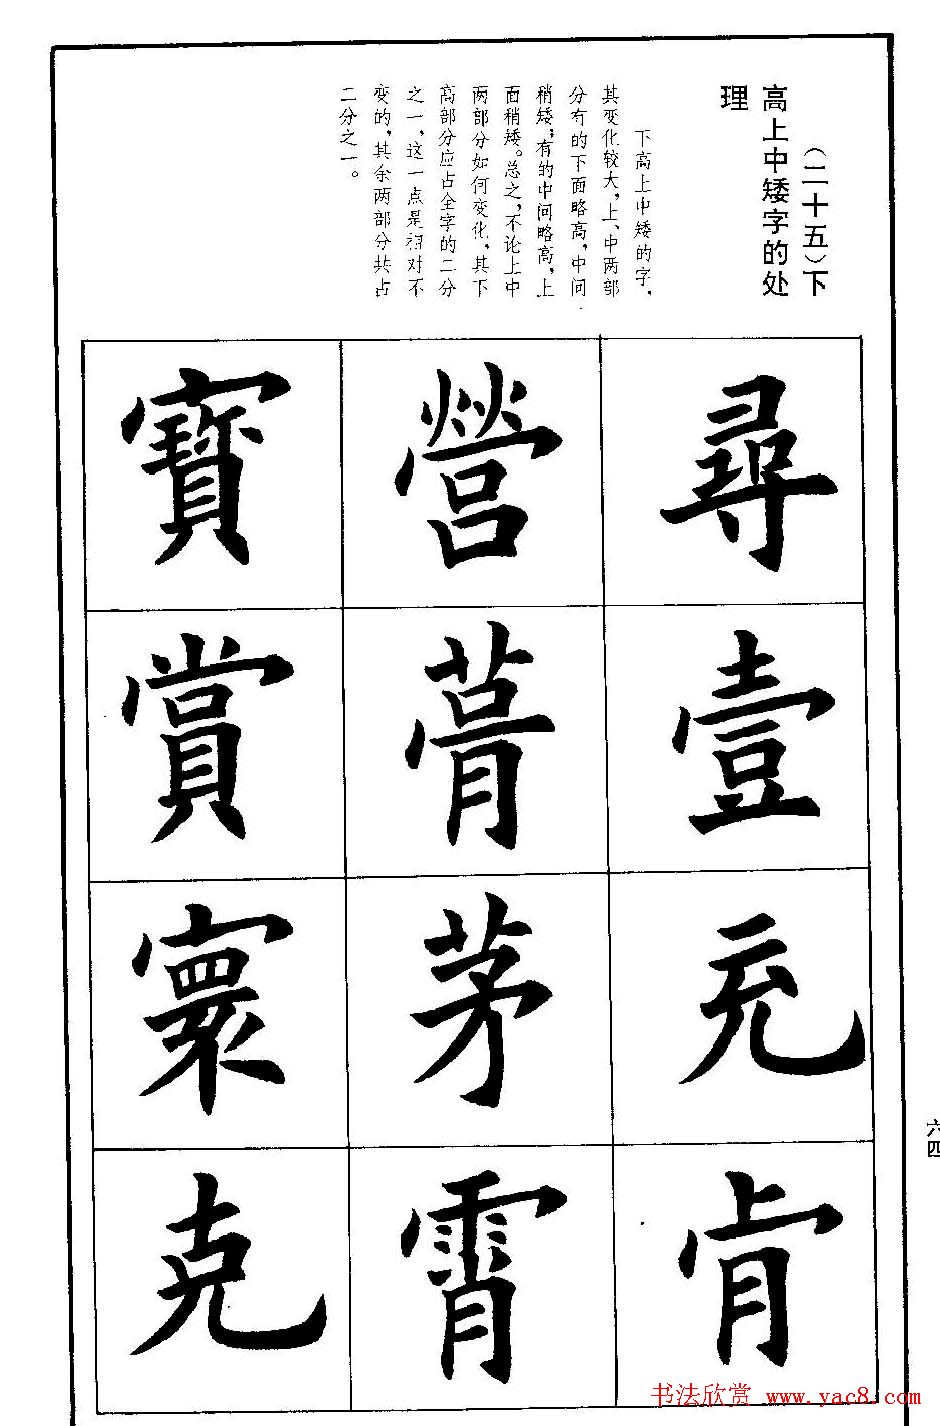 （二十五）下
高上中矮字的处
理
下高上中矮的字，
其变化较大，上、中两部
分有的下面略高，中间
稍矮；有的中间略高，上
面稍矮。总之，不论上中
两部分如何变化，其下
高部分应占全字的二分
之一，这一点是相对不
变的，其余两部分共占
二分之一。
尋
壹
充
肯
營
膏
茅
霄
寶
賞
寰
克
六四
书法欣赏 www.yac8.com